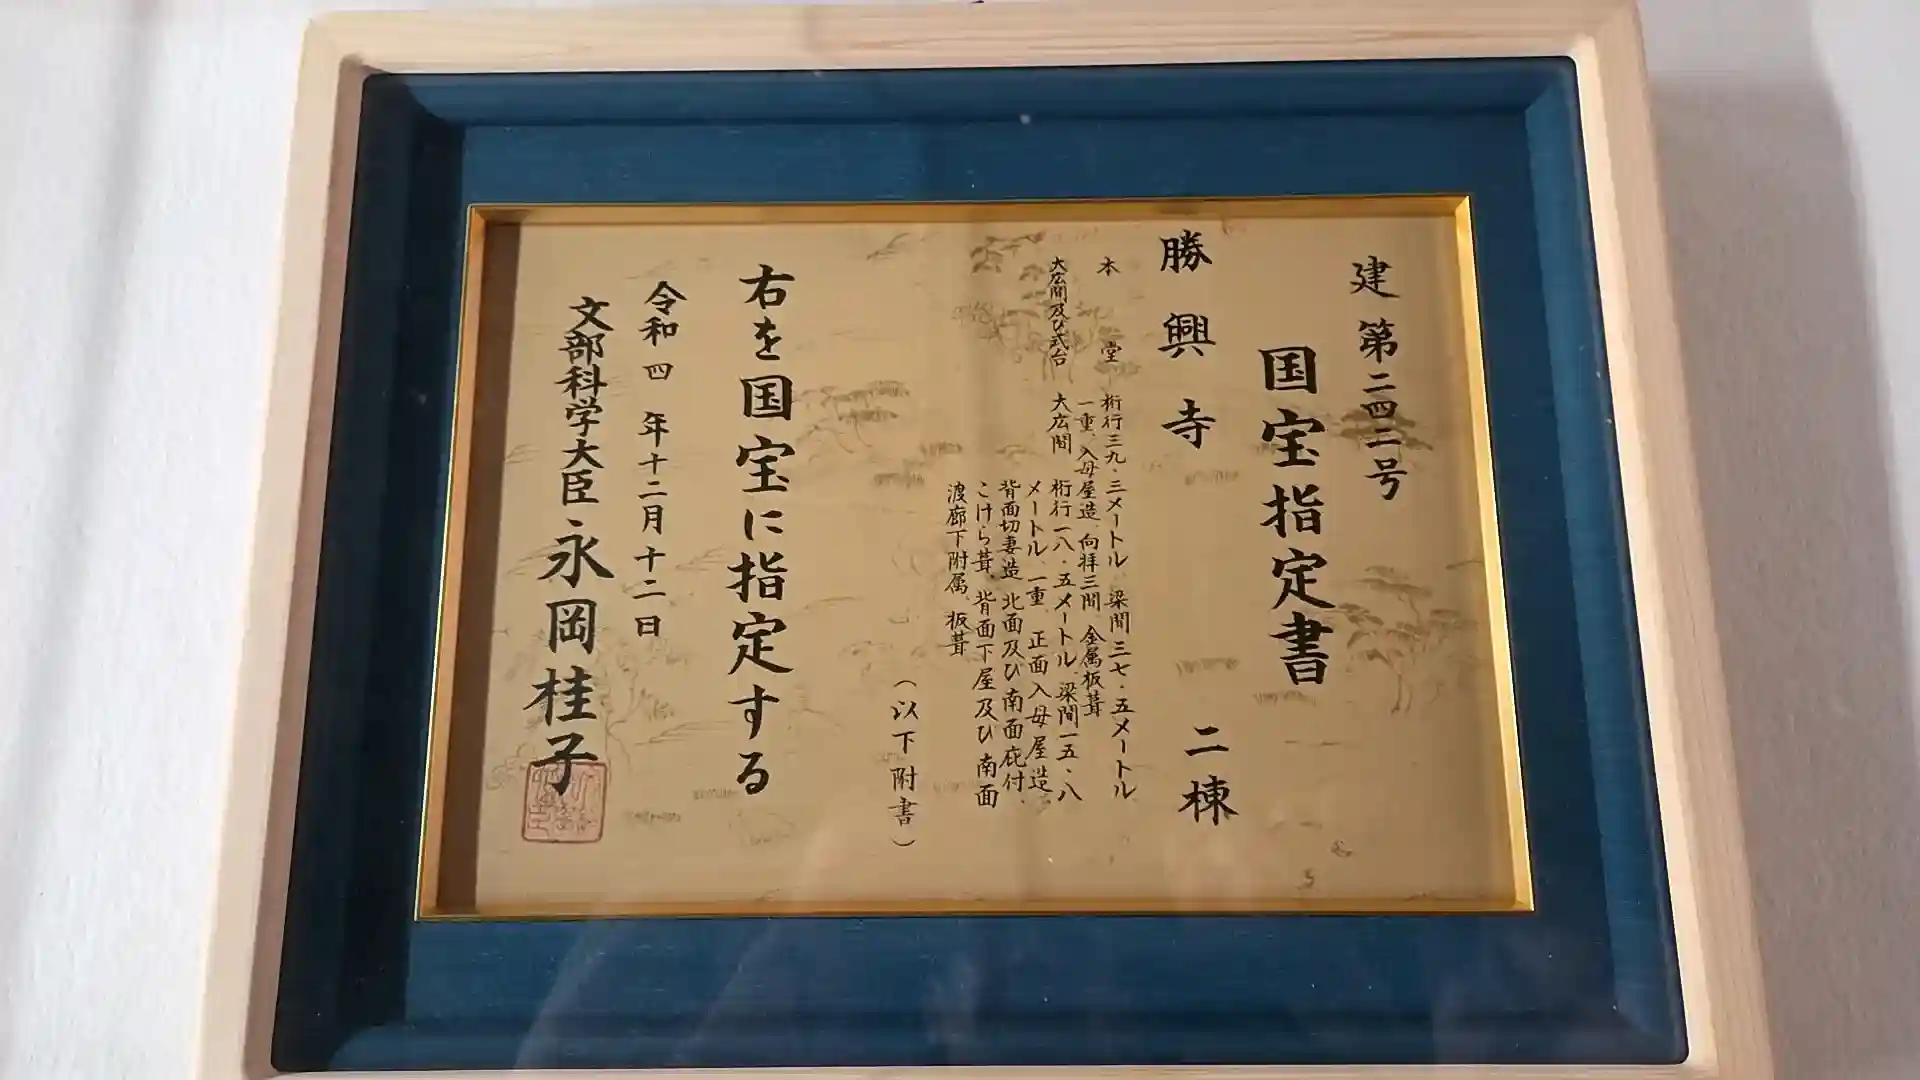 建第二四二号
国宝指定書
勝興寺 二棟
本堂 桁行三九・三メートル、梁間三七・五メートル、
一重、入母屋造、向拝三間、金属板葺
大広間及び式台 大広間 桁行一八・五メートル、梁間一五・八
メートル、一重、正面入母屋造、
背面切妻造、北面及び南面庇付、
こけら葺、背面下屋及び南面
渡廊下附属、板葺
（以下附書）
右を国宝に指定する
令和四年十二月十二日
文部科学大臣 永岡桂子